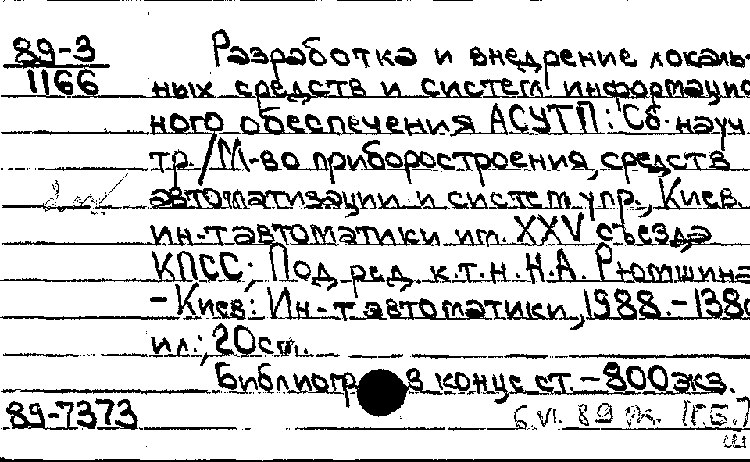 89-3
1166
Разработка и внедрение локаль-
ных средств и систем информацио
ного обеспечения АСУТП: Сб. науч
тр. / М-во приборостроения, средств
автоматизации и систем упр., Киев.
ин-т автоматики им. XXV съезда
КПСС; Под ред. к.т.н. Н.А. Рюмшина
- Киев: Ин-т автоматики, 1988. - 138с
ил.; 20 см.
Библиогр. в конце ст. - 800 экз.
89-7373
6.VI.89 [Г.Б.]